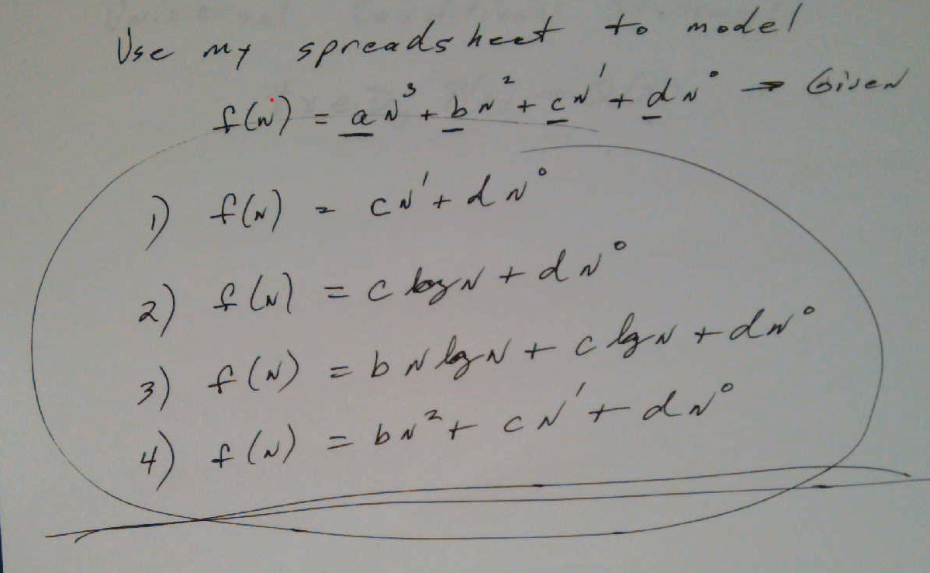 Use my spreadsheet to model
f(N) = aN³ + bN² + cN¹ + dN⁰ → Given
1) f(N) = cN¹ + dN⁰
2) f(N) = c log N + dN⁰
3) f(N) = b N lg N + c lg N + dN⁰
4) f(N) = bN² + cN¹ + dN⁰